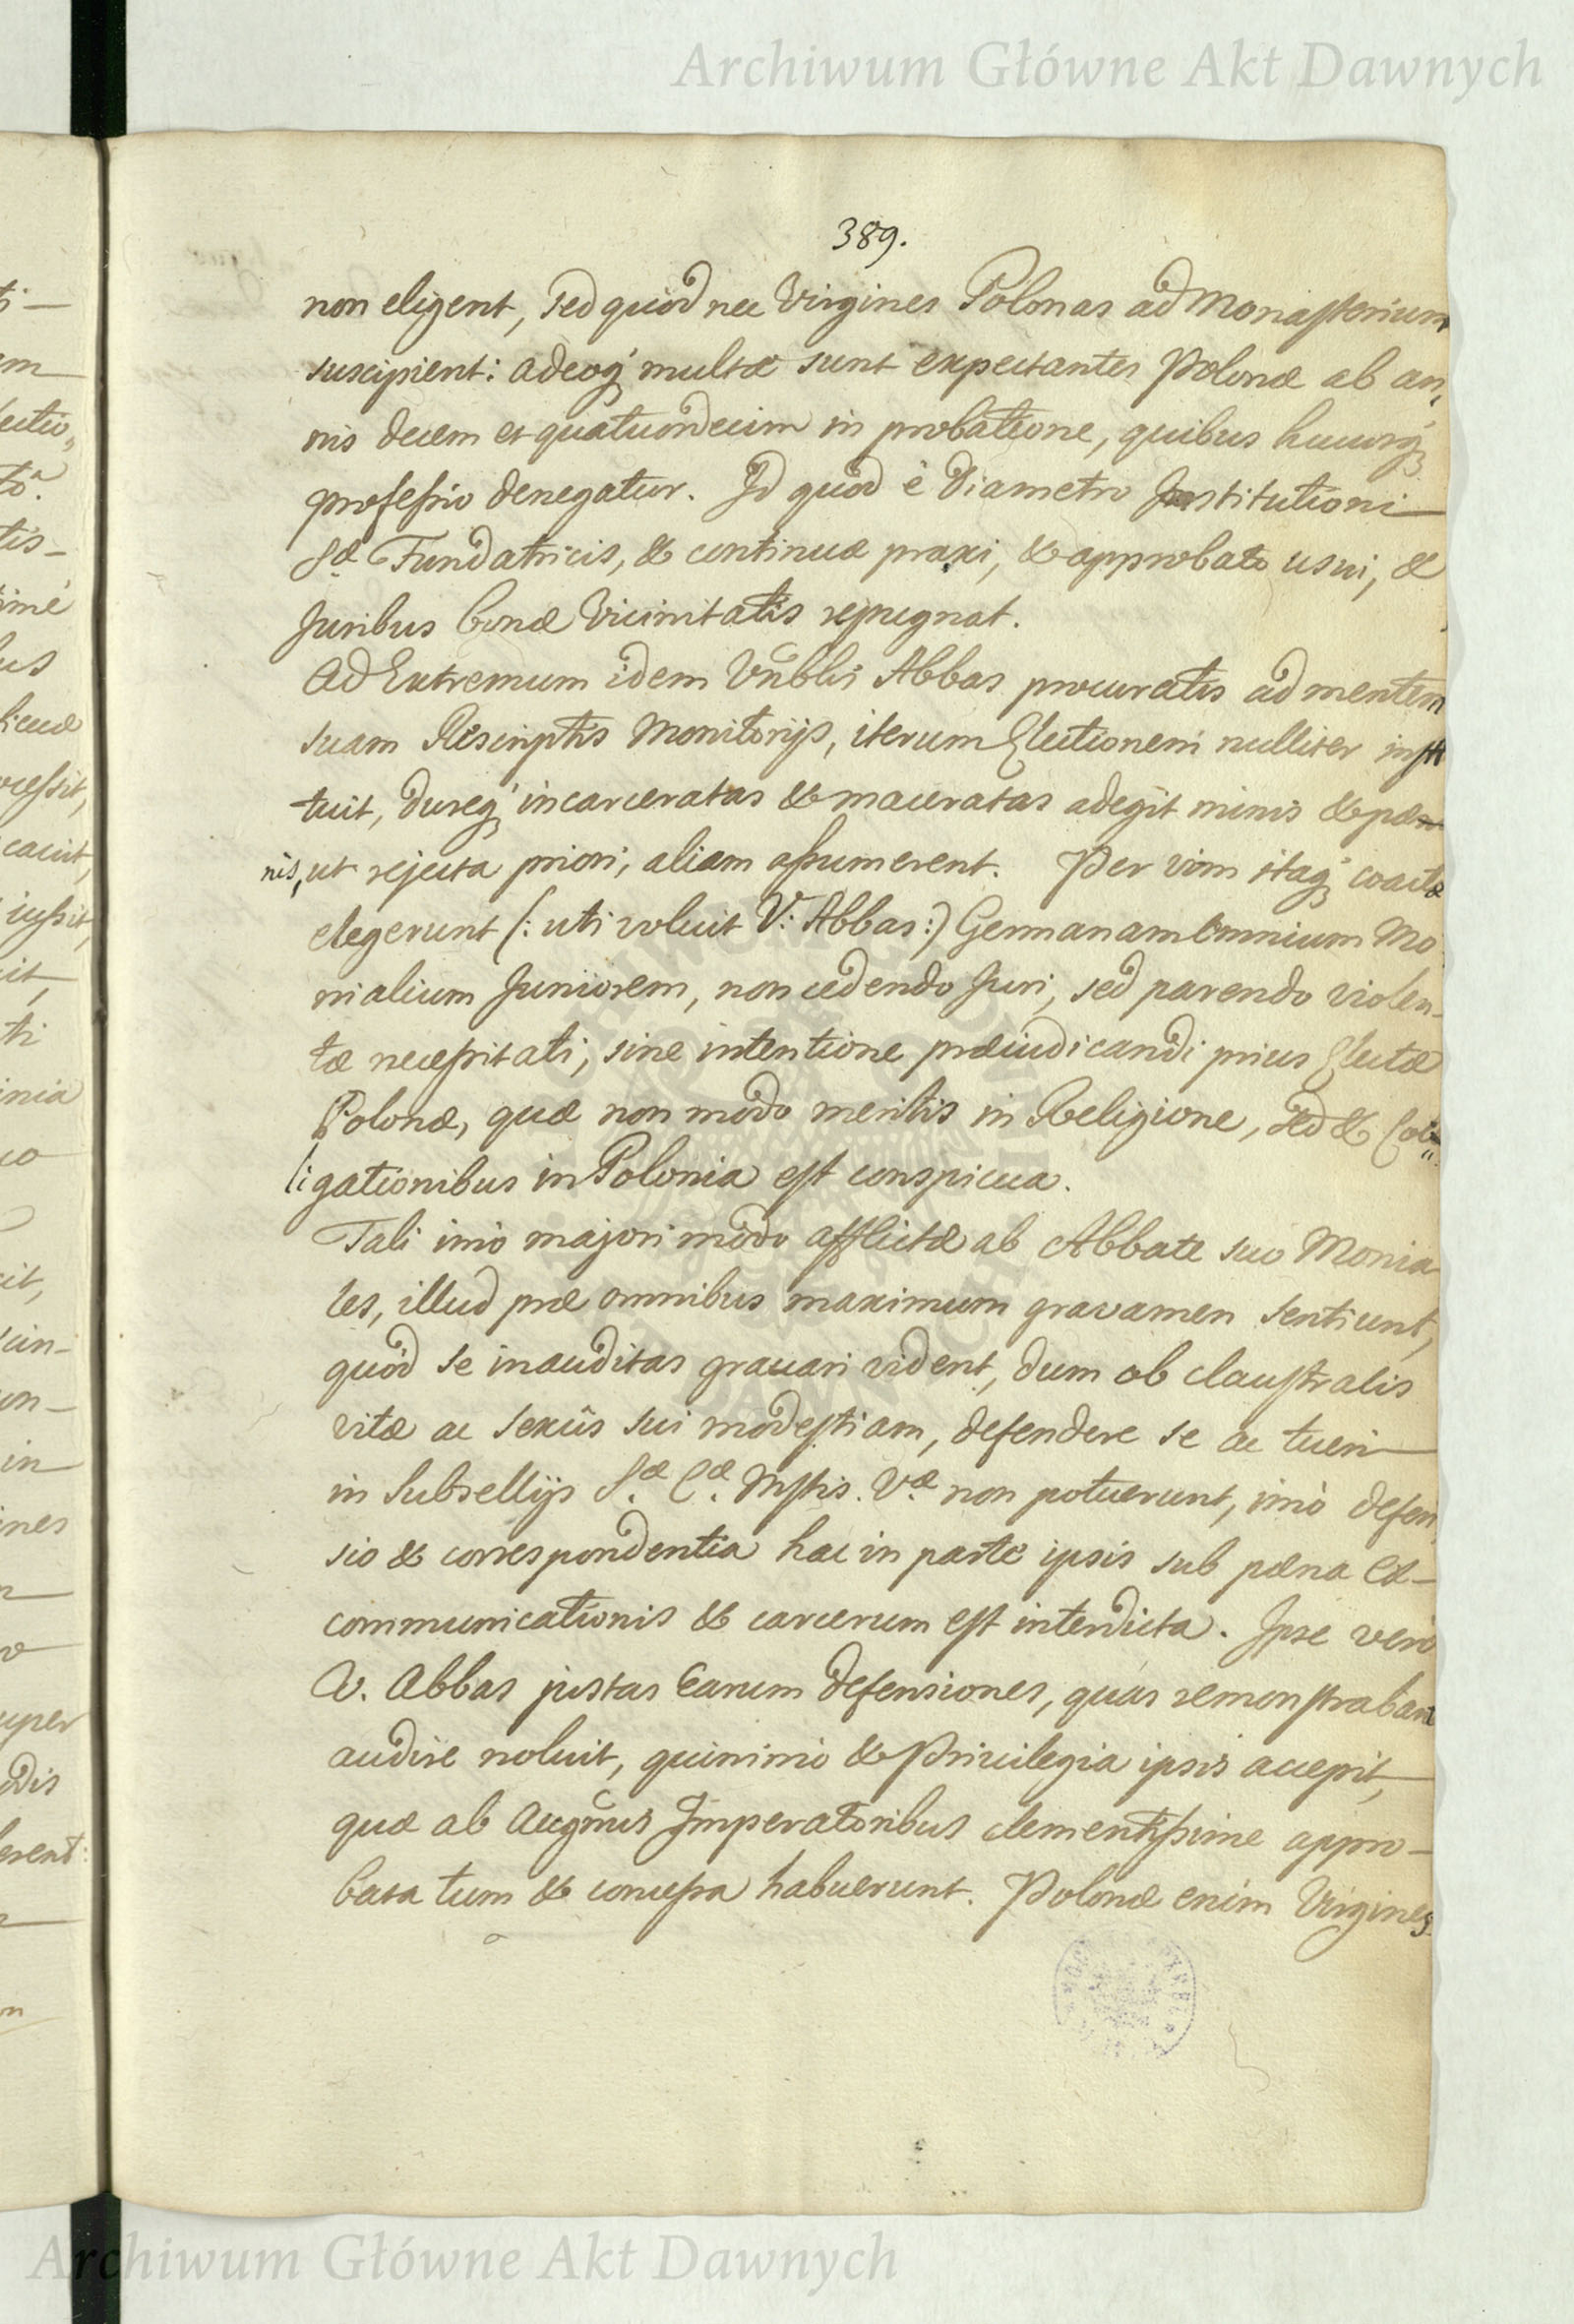 Archiwum Główne Akt Dawnych
389.
non eligent, sed quòd nec Virgines Polonas ad Monasterium
suscipient: adeoq́ multæ sunt expectantes Polonæ ab an,
nis decem et quatuordecim in probatione, quibus hucusq́
professio denegatur. Id quod è diametro Institutioni
S.æ Fundatricis, & continuæ praxi, & approbato usui, &
Juribus bonæ Vicinitatis repugnat.
Ad Extremum idem Vnblis Abbas procuratis ad mentem
suam Rescriptis Monitorijs, iterum Electionem nulliter insti
tuit, dureq́ incarceratas & maceratas adegit minis & pæ
nis, ut rejecta priori, aliam assumerent. Per vim itaq́ coactæ
elegerunt (: uti voluit V: Abbas:) Germanam omnium Mo
nialium Juniorem, non cedendo Juri, sed parendo violen-
tæ necessitati, sine intentione præiudicandi prius Electæ
Polonæ, quæ non modo meritis in Religione, sed & Col
ligationibus in Polonia est conspicua.
Tali imò majori modo afflictæ ab Abbate suo Monia
les, illud præ omnibus maximum gravamen sentiunt,
quòd se inauditas grauari vident, dum ob claustralis
vitæ ac sexûs sui modestiam, defendere se ac tueri
in Subsellijs S.æ C.æ Mstis. V.æ non potuerunt, imò defen
sio & correspondentia hac in parte ipsis sub pæna Ex-
communicationis & carcerum est interdicta. Ipse verò
V. Abbas justas Earum defensiones, quas remonstrabant
audire noluit, quinimò & Priuilegia ipsis accepit,
quæ ab Augmis Imperatoribus clementissime appro-
bata tum & concessa habuerunt. Polonæ enim Virgines
Archiwum Główne Akt Dawnych